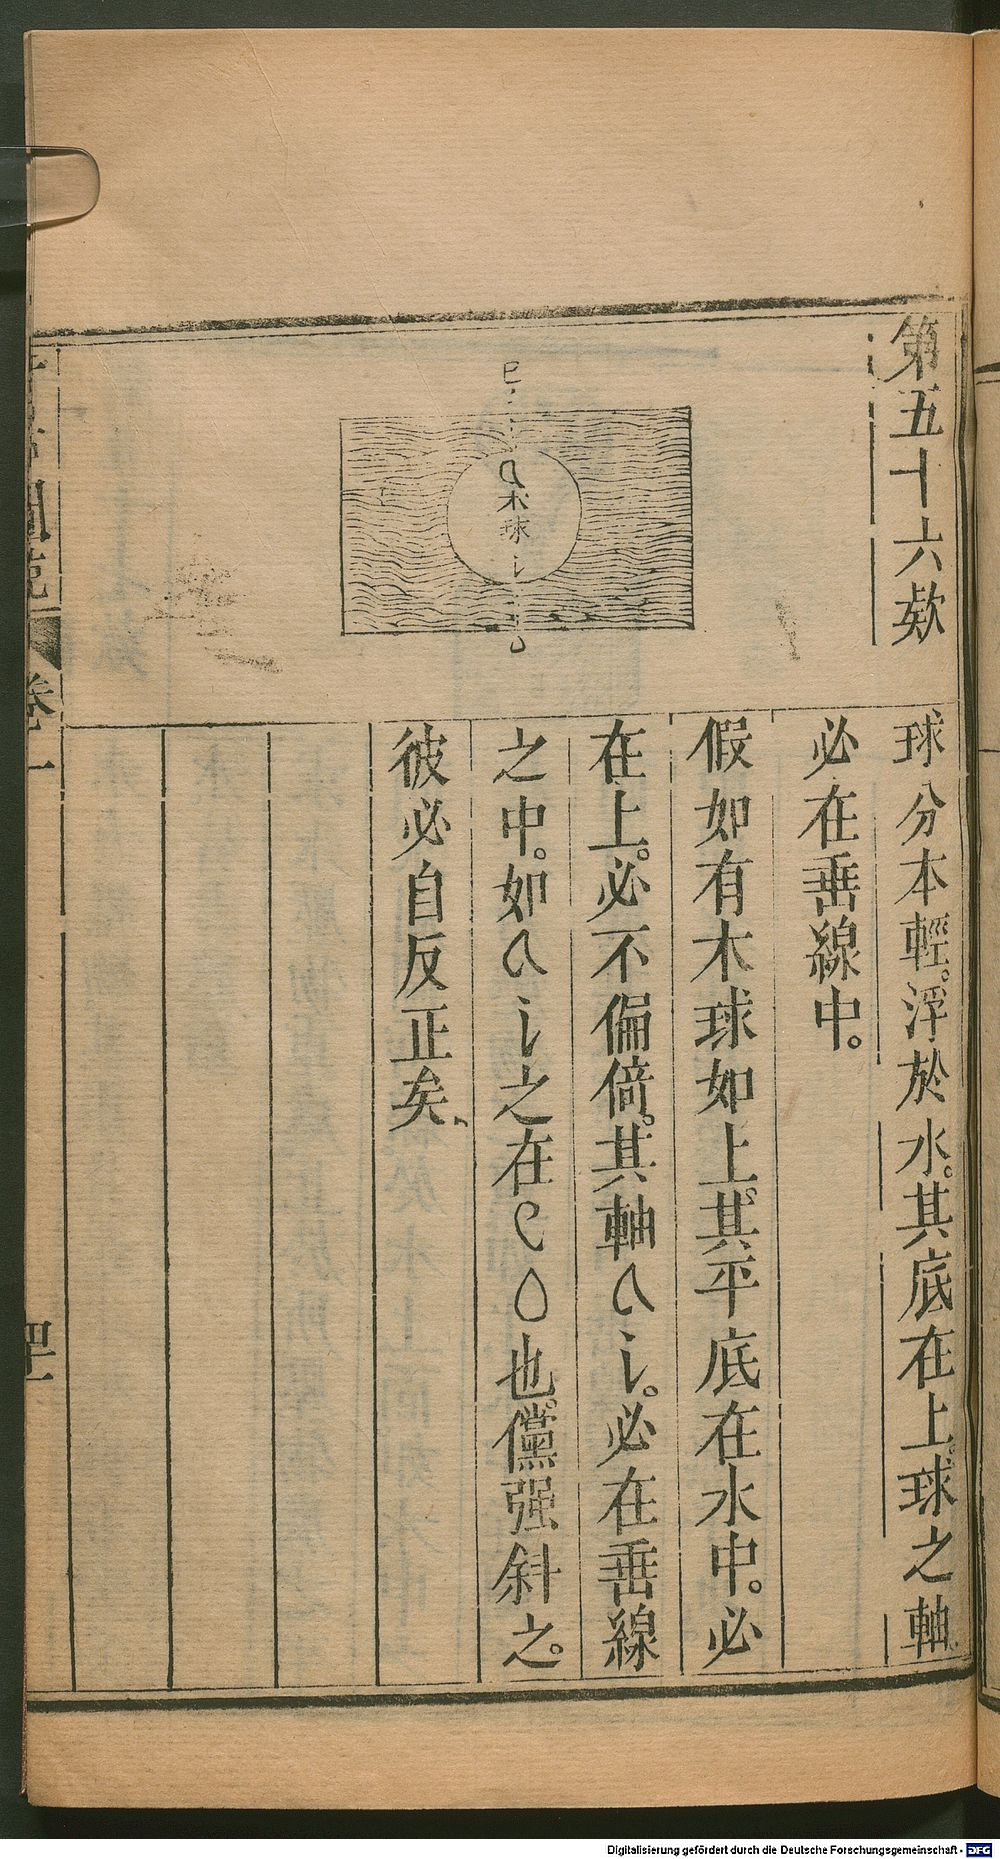 第五十六欵
球分本輕。浮於水。其底在上。球之軸。
必在垂線中。
假如有木球如上。其平底在水中。必
在上。必不偏倚。其軸乀辶。必在垂線
之中。如乀辶之在 也。儻强斜之。
彼必自反正矣、
木球
卷一
Digitalisierung gefördert durch die Deutsche Forschungsgemeinschaft - DFG